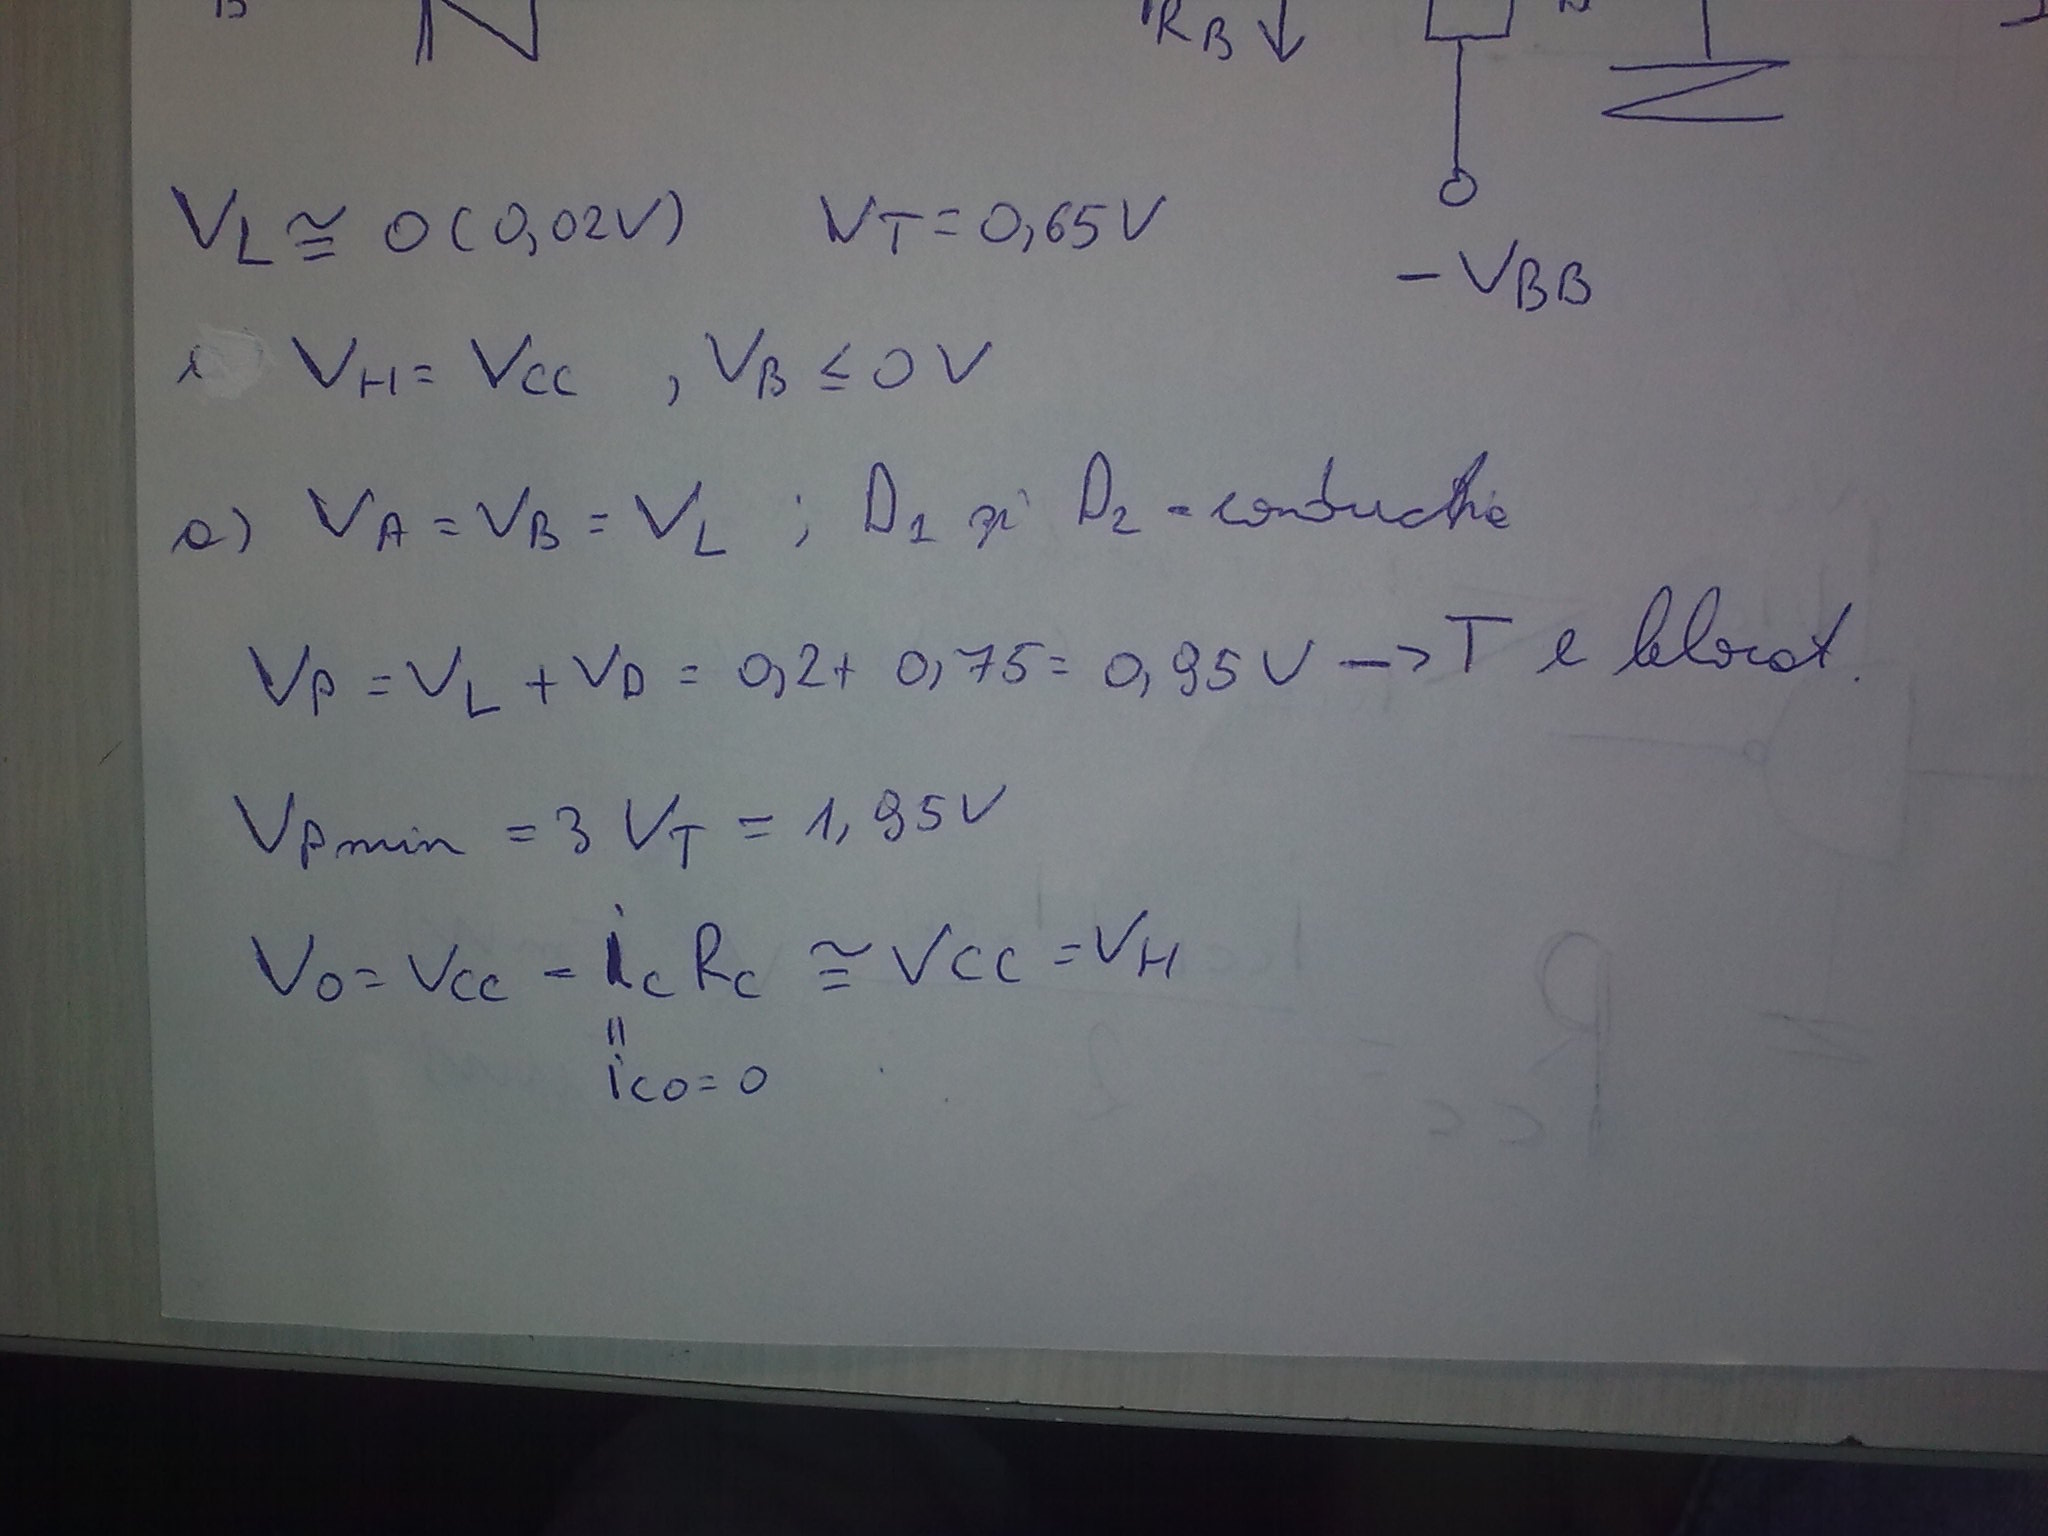 B R_B ↓
V_L ≅ 0 (0,02V) V_T = 0,65V
-V_BB
V_H = V_CC , V_B ≤ 0V
a) V_A = V_B = V_L ; D_1 și D_2 - conductie
V_P = V_L + V_D = 0,2 + 0,75 = 0,95V -> T e blocat.
V_Pmin = 3 V_T = 1,95V
V_O = V_CC - i_C R_C ≅ V_CC = V_H
=
i_CO = 0